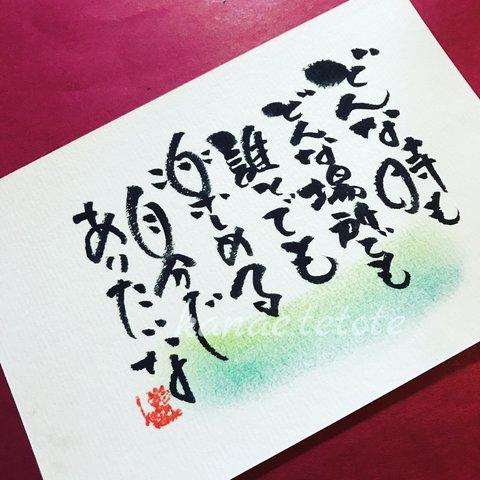 どんな時も
どんな場所でも
誰とでも
楽しめる
自分で
ありたいな
kanae.tetote